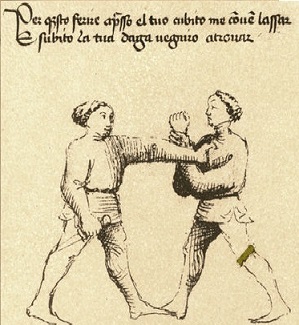 Per questo ferire apresso el tuo cubito me coven lassar
E subito la tua daga vegniro a trovar